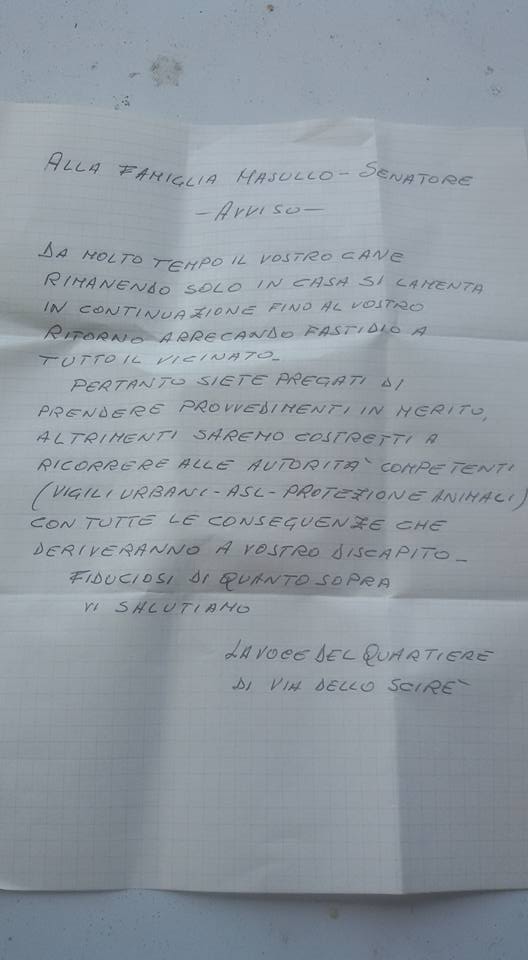 ALLA FAMIGLIA MASULLO - SENATORE
- AVVISO -
DA MOLTO TEMPO IL VOSTRO CANE
RIMANENDO SOLO IN CASA SI LAMENTA
IN CONTINUAZIONE FINO AL VOSTRO
RITORNO ARRECANDO FASTIDIO A
TUTTO IL VICINATO_
PERTANTO SIETE PREGATI DI
PRENDERE PROVVEDIMENTI IN MERITO,
ALTRIMENTI SAREMO COSTRETTI A
RICORRERE ALLE AUTORITA' COMPETENTI
(VIGILI URBANI - ASL - PROTEZIONE ANIMALI)
CON TUTTE LE CONSEGUENZE CHE
DERIVERANNO A VOSTRO DISCAPITO_
FIDUCIOSI DI QUANTO SOPRA
VI SALUTIAMO
LA VOCE DEL QUARTIERE
DI VIA DELLO SCIRE'